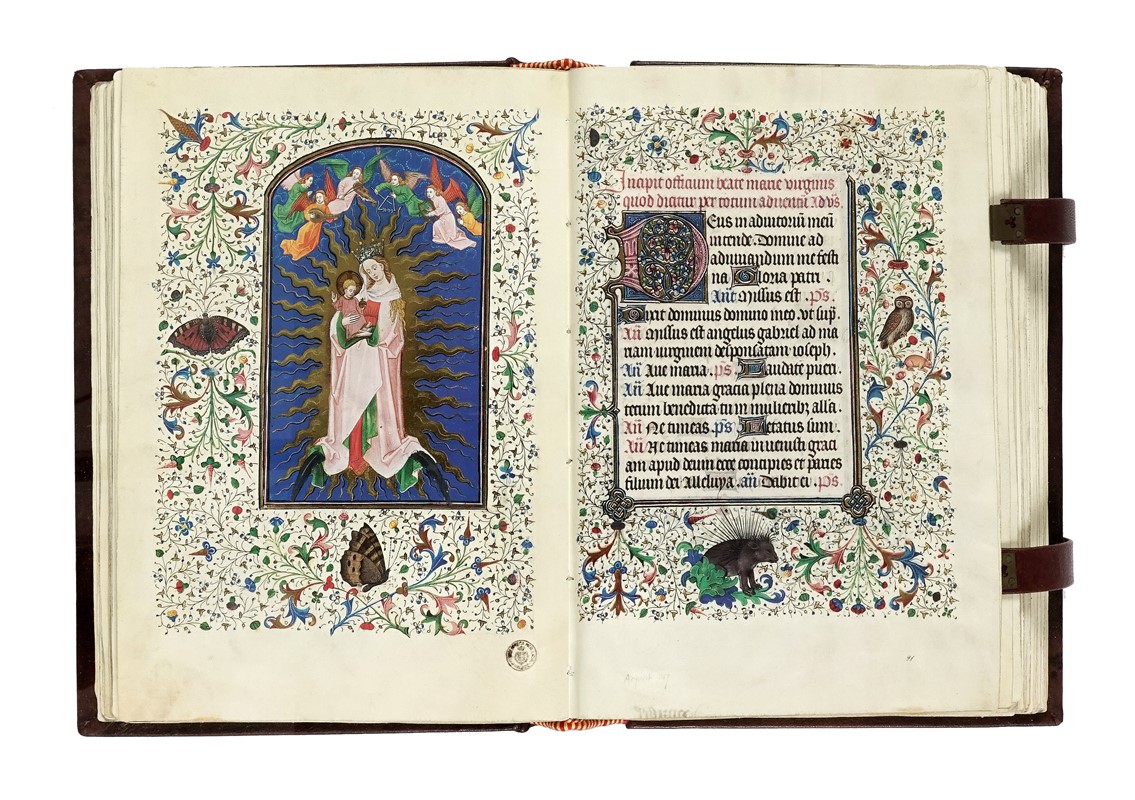 Incipit officium beate marie virginis
quod dicitur per totum aduentū Ad v̄s.
Deus in adiutoriū meū
intende. Domine ad
adiuuandum me festi
na Gloria patri
Añt Missus est .Ps.
Dixit dominus domino meo. vt sup̄.
Añ Missus est angelus gabriel ad ma
riam virginem desponsatam ioseph.
Añ Aue maria .ps Laudate pueri.
Añ Aue maria gracia plena dominus
tecum benedicta tu in mulieribꝫ alla.
Añ Ne timeas .ps Letatus sum.
Añ Ne timeas maria inuenisti graci
am apud deum ecce concipies et paries
filium dei Alleluya. añ Dabit ei .ps.